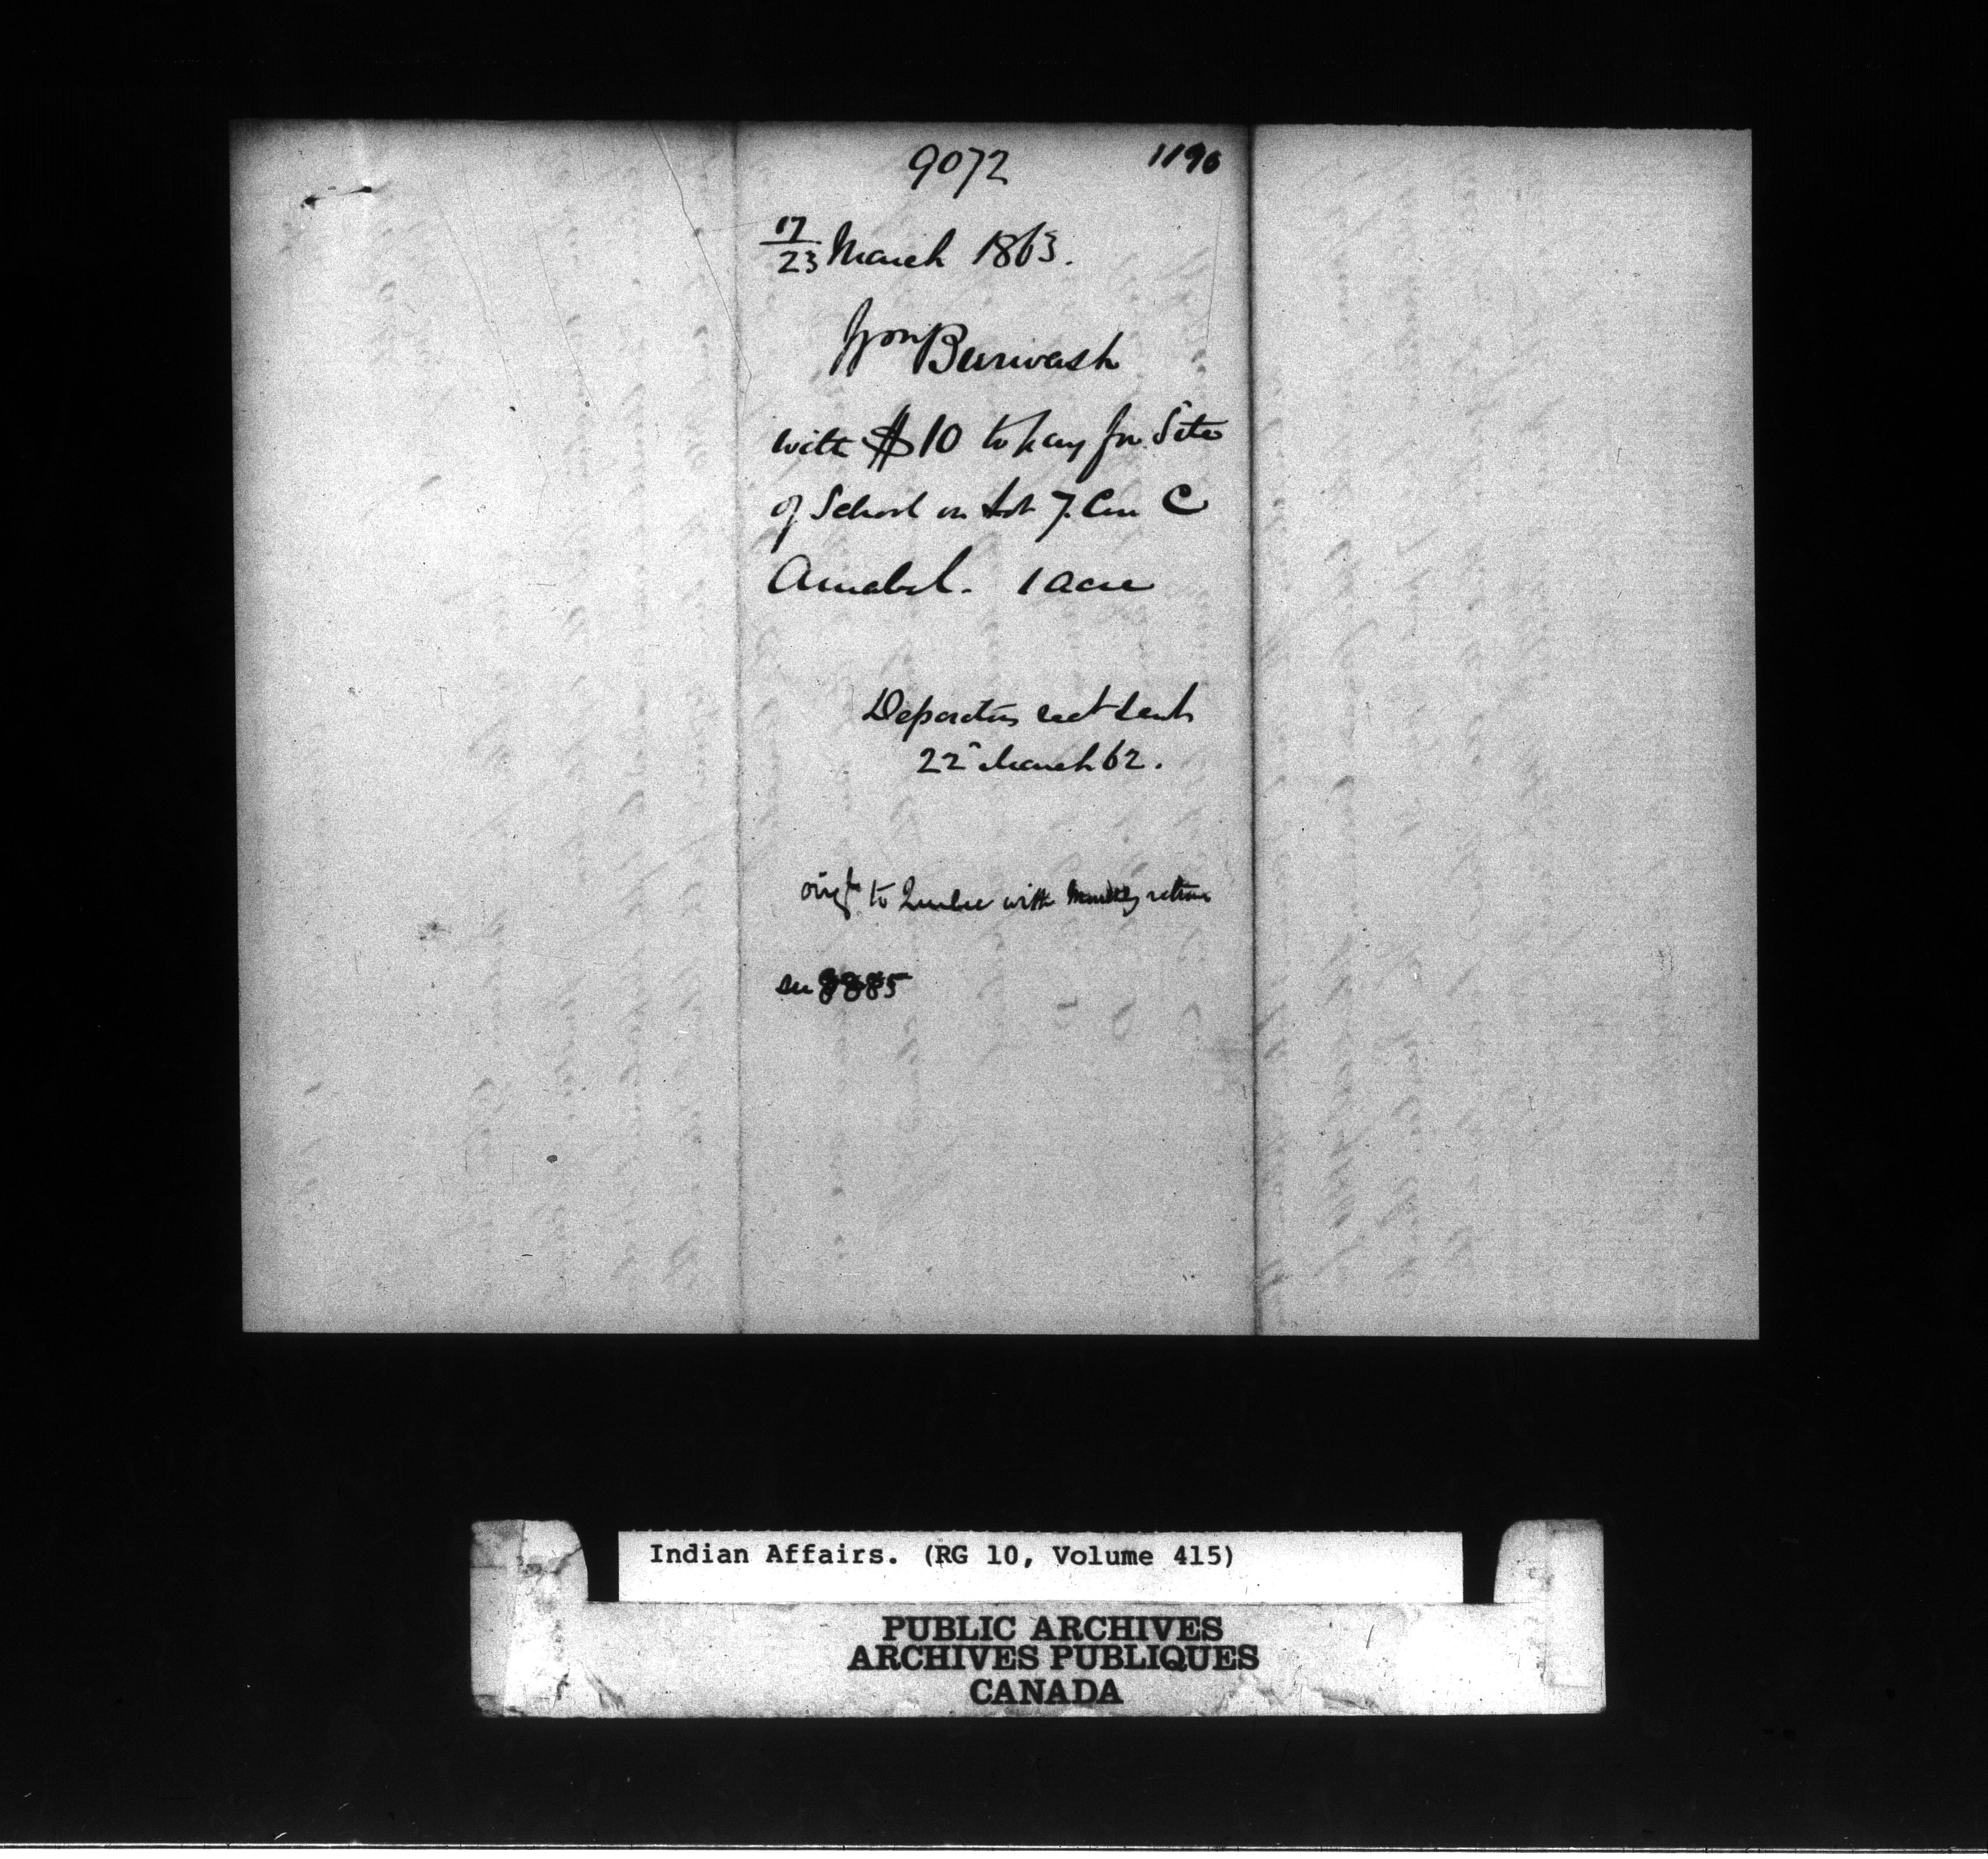 9072 1190
17/23 March 1863.
Wm Burwash
with $10 to pay for Site
of School on Lot 7. Con C
Amabel. 1 acre
Deposition rect sent
22d March 62.
orig'l to Quebec with Monthly return
see 8885
Indian Affairs. (RG 10, Volume 415)
PUBLIC ARCHIVES
ARCHIVES PUBLIQUES
CANADA